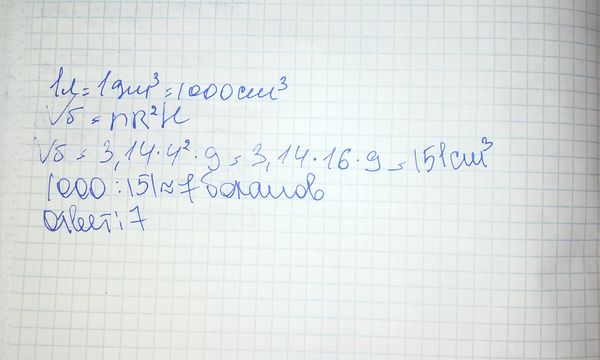 1л = 1дм³ = 1000см³
Vб = πR²H
Vб = 3,14 · 4² · 9 = 3,14 · 16 · 9 = 151см³
1000 : 151 ≈ 7 бокалов
Ответ: 7